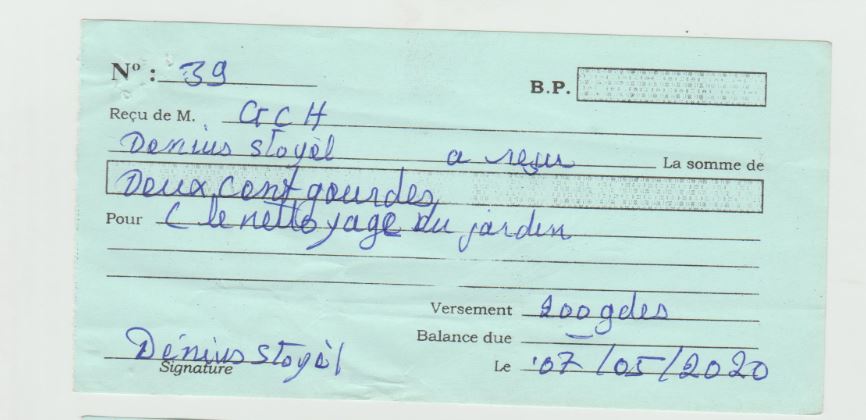 N° : 39
B.P.
Reçu de M. GCH
Denius stoyèl a reçu La somme de
Deux cent gourdes
Pour le nettoyage du jardin
Versement 200 gdes
Balance due
Dénius stoyèl
Signature
Le 07/05/2020